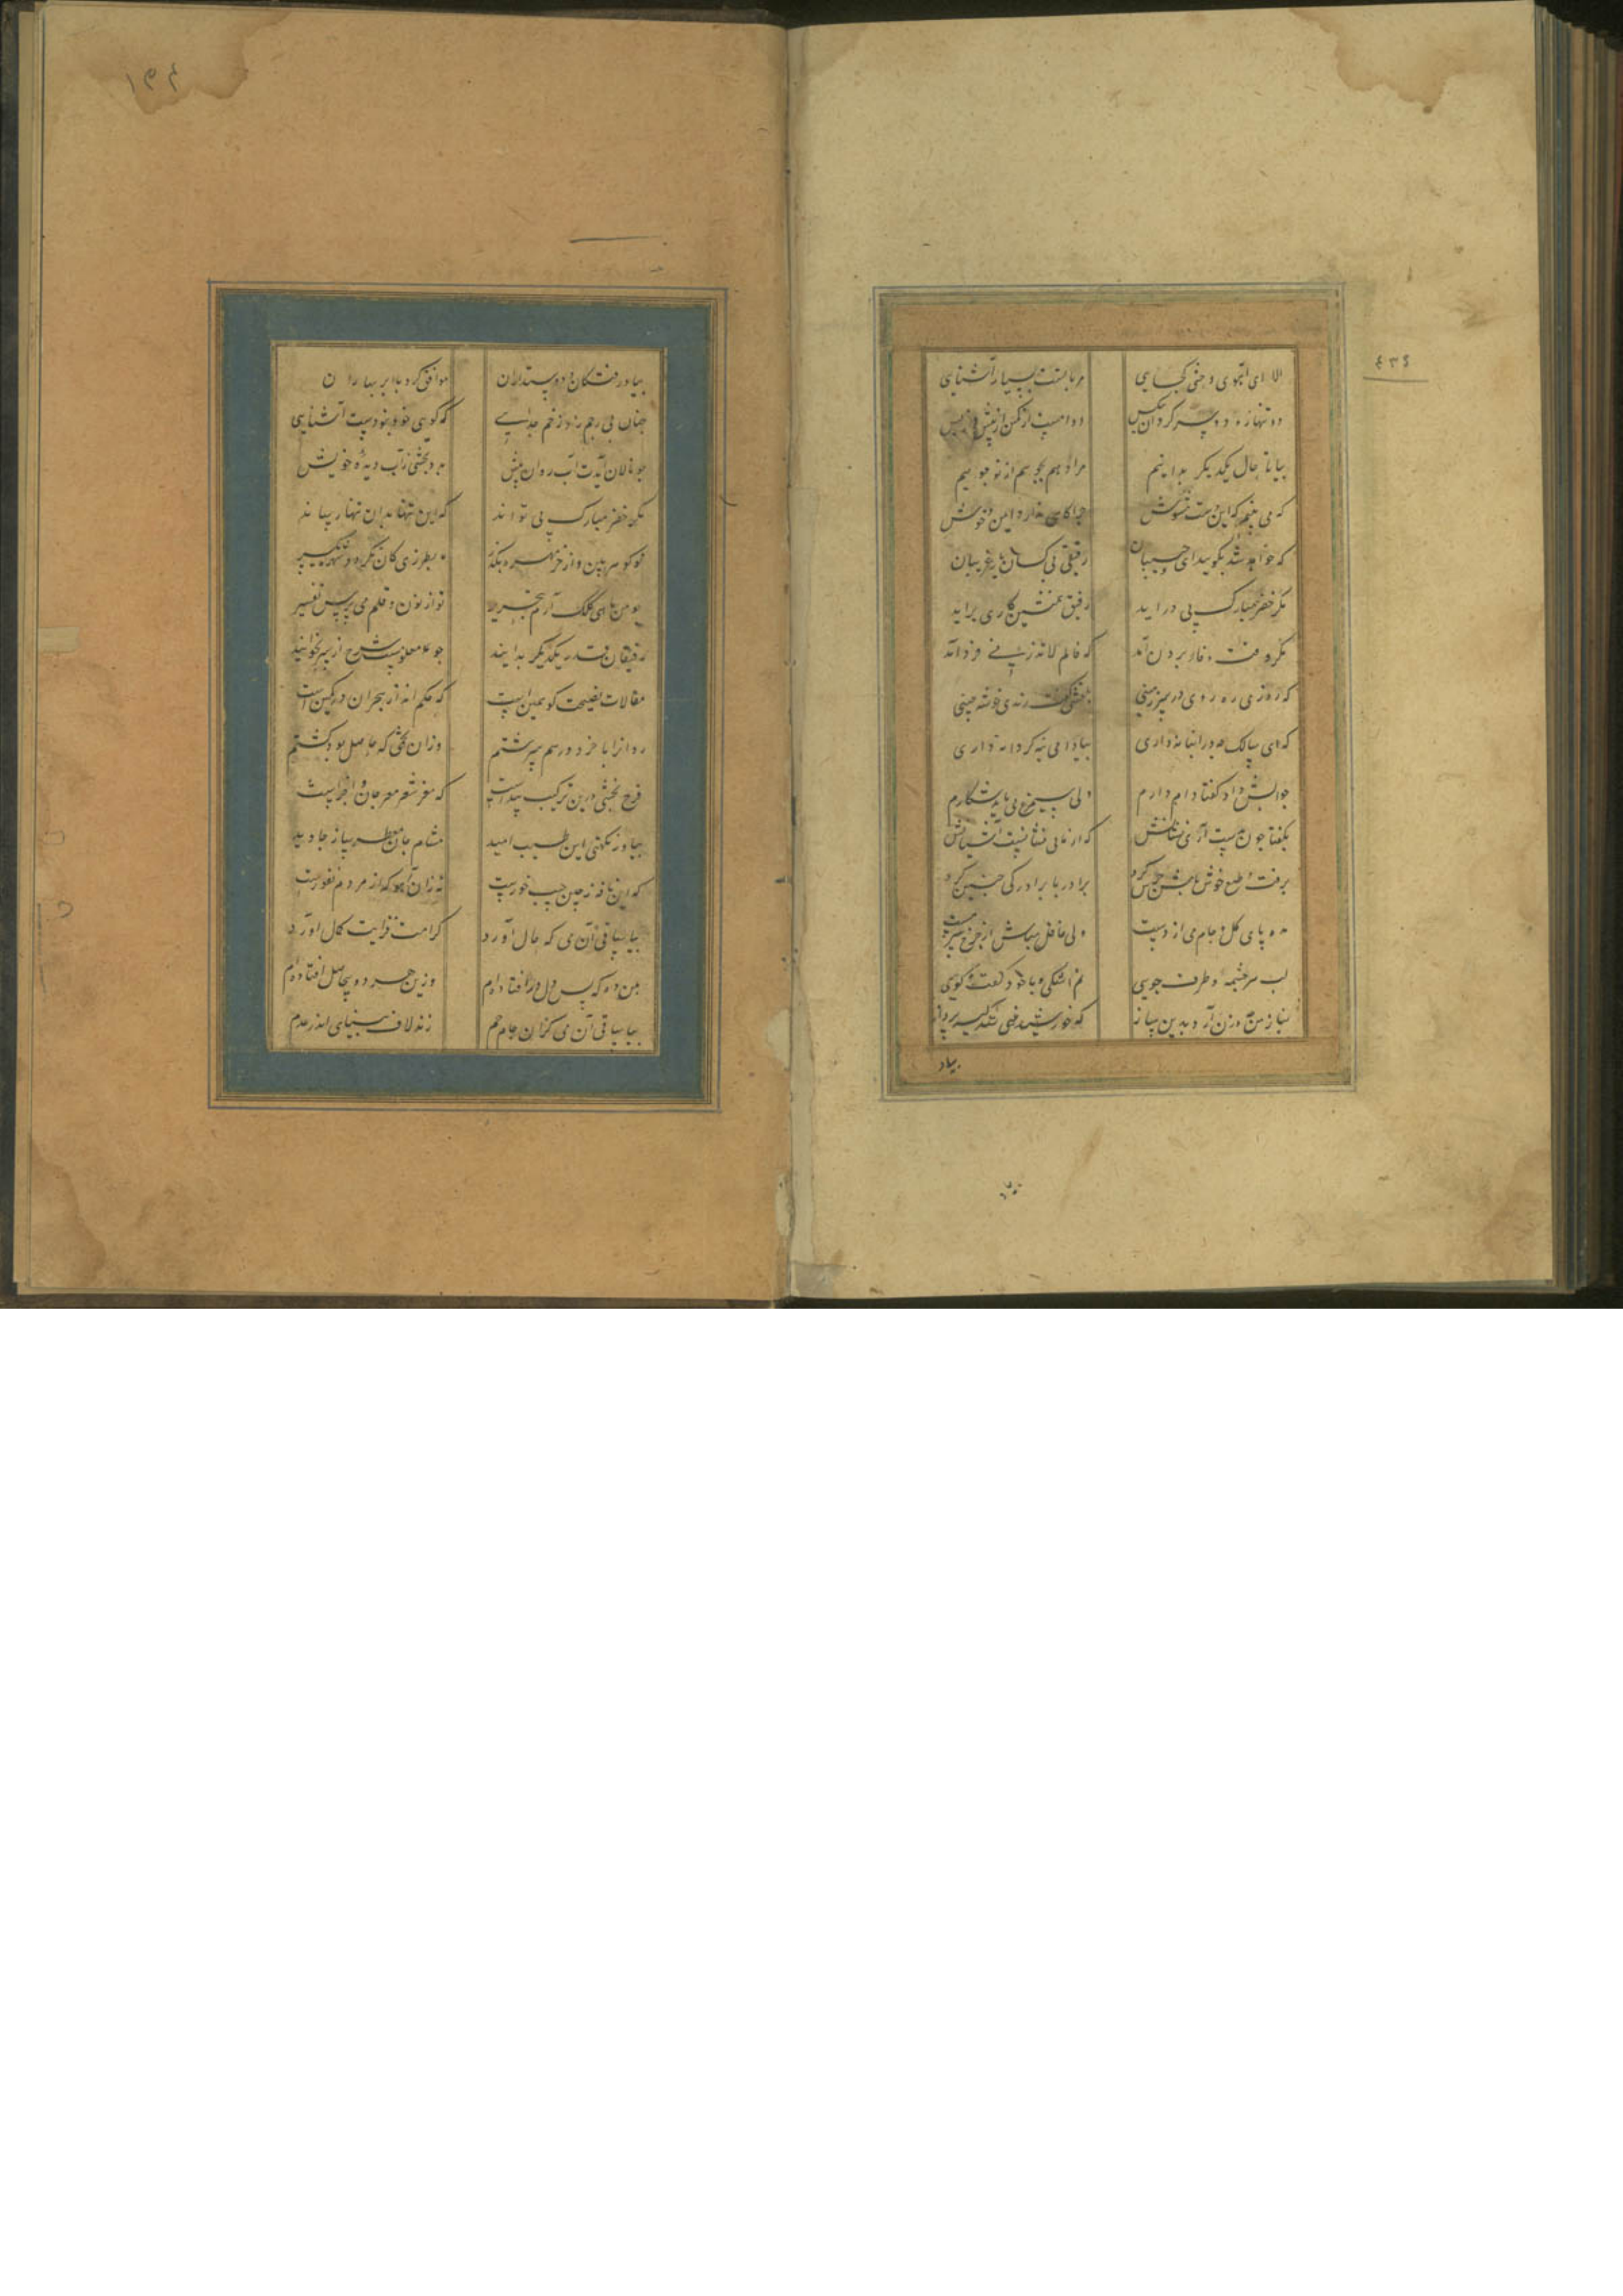 الا ای آهوی وحشی کجایی مرا با تست بسیار آشنایی
دو تنها و دو سرگردان بیکس دد و دامت کمین از پیش و از پس
بیا تا حال یکدیگر بدانیم مراد هم بجوییم از توانیم
که می بینم که این دشت مشوش چراگاهی ندارد ایمن و خوش
که خواهد شد بگویید ای حبیبان رفیق بی کسان یار غریبان
مگر خضر مبارک پی در اید رفیق همنشین کاری براید
مگر وقت وفا پروردن آمد که فالم لا تذرنی فردا آمد
که روزی ره روی در سرزمینی بلطفش گفت رندی خوشه چینی
که ای سالک چه در انبانه داری بیا دامی بنه گر دانه داری
جوابش داد گفتا دام دارم ولی سیمرغ می باید شکارم
بگفتا چون بدست آری نشانش که از ما بی نشانست آشیانش
برفت و طبع خوش باشم حزین کرد برادر با برادر کی چنین کرد
مده پای گل و جام می از دست ولی غافل مباش از چرخ بدمست
لب سرچشمه و طرف جویی نم اشکی و با خود گفت و گویی
نیاز من چه وزن آرد بدین ساز که خورشید غنی شد کیسه پرداز
بیاد
۴۳۴
بیاد رفتگان و دوستداران موافق گرد با ابر بهاران
چنان بی رحم زد زخم جدایی که گویی خود نبودست آشنایی
چو نالان آیدت آب روان پیش مدد بخشی ز آب دیده خویش
مگر خضر مبارک پی تواند که این تنها بدان تنها رساند
تو گوهر بین و از خرمهره بگذر بطرزی کان نگردد شهره بگذر
چو من ماهی کلک آرم بتحریر تو از نون و قلم می پرس تفسیر
رفیقان قدر یکدیگر بدانید چو معلومست شرح از بر بخوانید
مقالات نصیحت گو همین است که حکم انداز هجران در کمین است
روانرا با خرد در هم سرشتم وزان تخمی که حاصل بود کشتم
فرح بخشی درین ترکیب پیداست که مغز شعر مغز جان و اجزاست
بیا وز نکهت این طیب امید مشام جان معطر ساز جاوید
که این نافه ز چین جیب حورست نه زان آهو که از مردم نفورست
بیا ساقی آن می که حال آورد کرامت فزاید کمال آورد
بمن ده که بس دل درافتاده ام وزین هر دو بیحاصل افتاده ام
بیا ساقی آن می کزان جام جم زند لاف بینایی اندر عدم